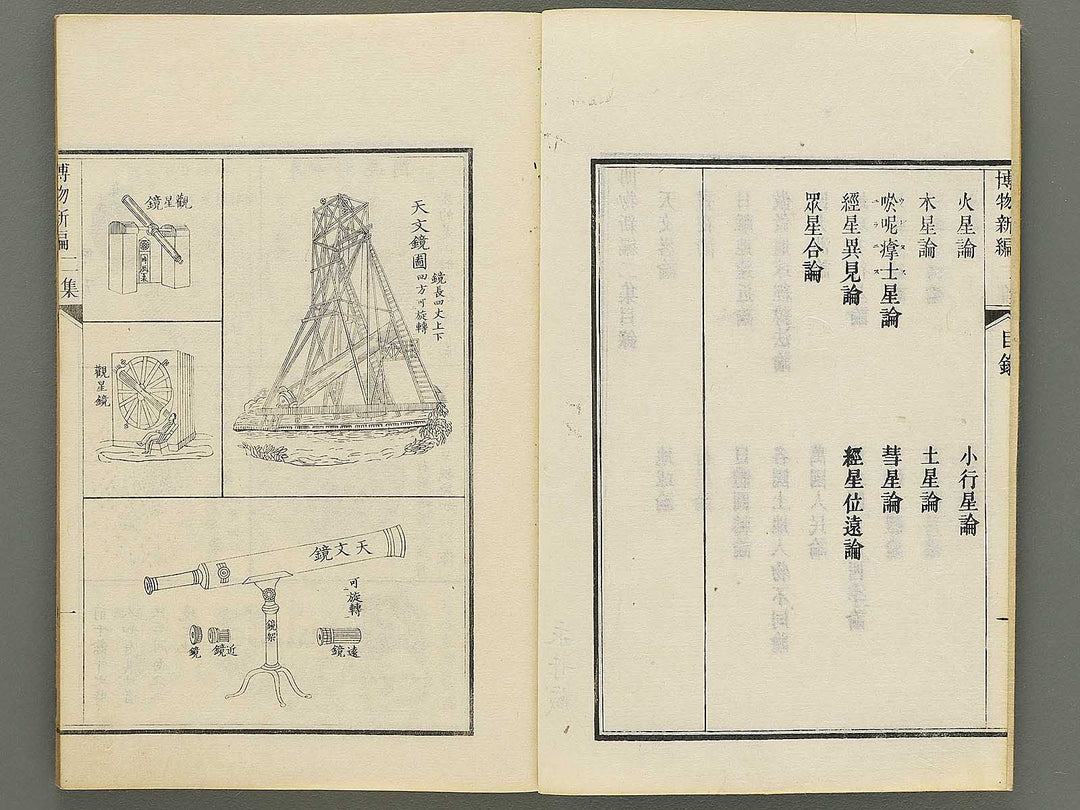 博物新編
目錄
火星論
小行星論
木星論
土星論
呢士星論
彗星論
經星異見論
經星位遠論
眾星合論
天文鏡圖
鏡長四丈上下
四方可旋轉
觀星鏡
觀星鏡
天文鏡
可旋轉
鏡架
遠鏡
近鏡
鏡
博物新編二集
一